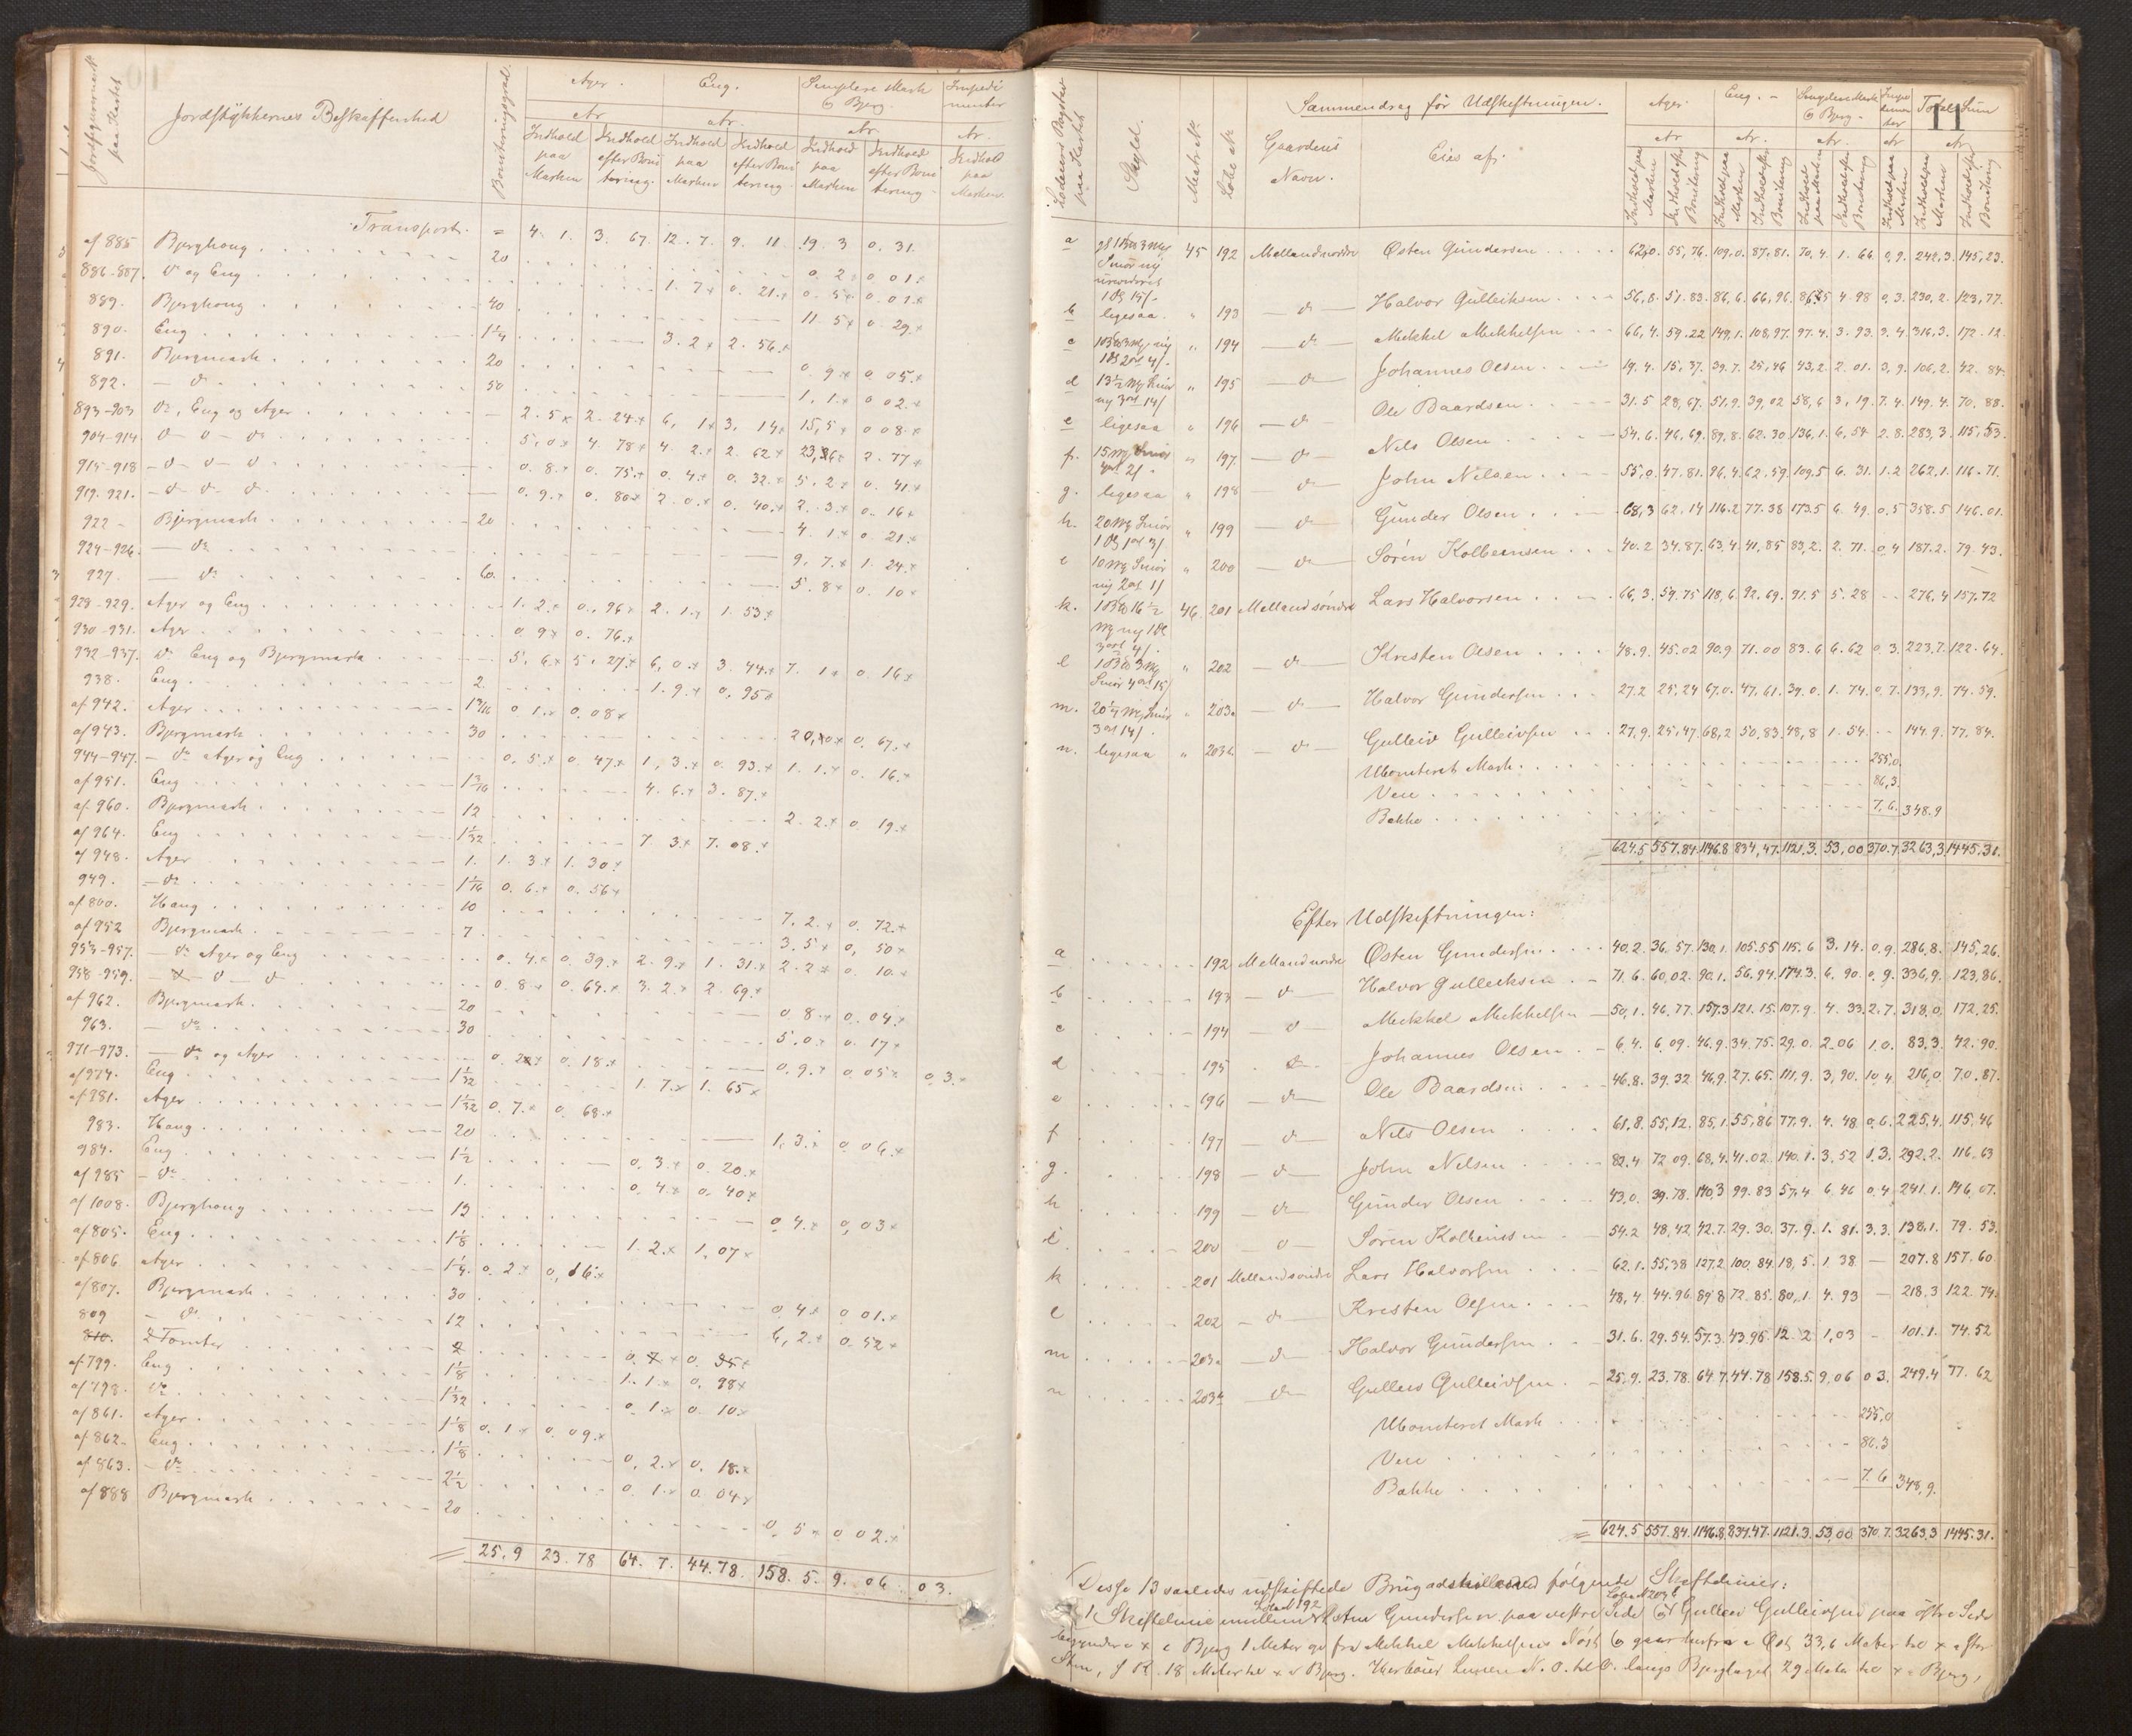 Jordstykkernes Beskaffenhed
Boniteringsgrad.
Ager. Eng. Simplere Mark & Bjerg. Impedimenter
Ar. Ar. Ar. Ar.
Indhold paa Marken Indhold efter Bonitering. Indhold paa Marken Indhold efter Bonitering. Indhold paa Marken Indhold efter Bonitering. Indhold paa Marken.
Transport. = 4. 1. 3. 67. 12. 7. 9. 11. 19. 3 0. 31.
af 885 Bjerghaug 20 0. 2 0 01
886-887. do og Eng 1. 7 0. 21. 0. 5 0. 01
889. Bjerghaug 40 11. 5 0. 29.
890. Eng 1 1/4 3. 2 2. 56.
891. Bjergmark 20 0. 9 0 05.
892. — do 50 1. 1. 0 02.
893-903 do, Eng og Ager 2. 5 2. 24 6. 1 3. 14 15, 5 0 08.
904-914. do — do 5. 0 4. 78 4. 2. 2. 62 23, 6 2. 77
915-918 — do 0. 8. 0. 75. 0. 4. 0. 32. 5. 2 0. 41.
919. 921. — do 0. 9. 0. 80 2. 0. 0. 40. 2. 3. 0. 16
922 - Bjergmark 20 4. 1 0. 21.
924-926. — do 9. 7. 1. 24.
927. — do 60. 5. 8 0. 10
928-929. Ager og Eng 1. 2. 0. 96 2. 1. 1. 53.
930-931. Ager 0. 9 0. 76.
932-937. do Eng og Bjergmark 5. 6 5. 27. 6, 0. 3. 44. 7. 1 0. 16
938. Eng 2 1. 9. 0. 95
af 942. Ager 0 1. 0. 08
af 943. Bjergmark 30 20, 0. 67.
944-947. — do Ager og Eng 0. 5. 0. 47. 1, 3. 0. 93. 1. 1. 0. 16.
af 951. Eng 4. 6. 3. 87.
af 960. Bjergmark 12 2. 2. 0 19.
af 964. Eng 1 1/32 7 3. 7. 08.
af 948. Ager 1. 1. 3 1. 30.
949. — do 1 1/16 0. 6. 0. 56
af 800. Haug 10 7. 2. 0. 72.
af 952 Bjergmark 7 3. 5 0, 50
953-957. — do Ager og Eng 0. 4. 0. 39. 2. 9. 1. 31. 2. 2 0. 10.
958-959. — do 0. 8 0. 64. 3. 2. 2. 69.
af 962. Bjergmark 20 0. 8. 0. 04.
963. — do 30 5. 0. 0. 17
971-973. — do og Ager 0. 2 0. 18. 0. 9. 0. 05 0. 3.
af 974. Eng 1 1/32 1. 7. 1. 65
af 981. Ager 1 1/32 0. 7. 0. 68.
983. Haug 20 1. 3. 0 06.
984. Eng 1 1/2 0. 3. 0. 20.
af 985 — do 1. 0. 4. 0. 40.
af 1008. Bjerghaug 13 0. 4. 0, 03
af 805. Eng 1 1/8 1. 2. 1, 07
af 806 Ager 1 1/4. 0. 2. 0, 16
af 807. Bjergmark 30 0. 4. 0 01.
809 — do 12 6, 2. 0. 52
810. Tomter
af 799. Eng 1 1/8 1. 1. 0. 98
af 798. do 1 1/32 0. 1. 0. 10.
af 861. Ager 1 1/8 0. 1 0. 09.
af 862. Eng 1 1/8 0. 2. 0. 18.
af 863. — do 2 1/2 0. 1. 0. 04
af 888 Bjergmark 20 0. 5 0 02.
= 25. 9 23. 78 64. 7. 44. 78. 158. 5. 9. 06. 0 3.
11
Sammendrag för Udskiftningen.
Skyld. Matr. No. Löbe No Gaardens Navn. Eies af.
Ager. Eng. Simplere Mark & Bjerg. Impedimenter Total Sum
a 45 192 Mellandnordre Østen Gundersen 62,0. 55, 76. 109,0. 87,81. 70, 4. 1. 66. 0, 9. 242, 3. 145, 23.
b ligesaa " 193 — do — Halvor Gulleiksen 56, 8. 51. 83. 86, 6. 66, 96. 86,5 4. 98 0, 3. 230, 2. 123, 77.
c " 194 — do — Mekkel Mekkelsen 66, 4. 59. 22 149, 1. 108, 97. 97. 4. 3. 93. 3. 4 316, 3. 172. 12.
d " 195 — do — Johannes Olsen 19. 4. 15, 37. 39. 7. 25, 46 43, 2. 2. 01. 3, 9. 106, 2. 42. 84.
e ligesaa " 196 — do — Ole Baardsen 31. 5 28, 67. 51, 9. 39, 02 58, 6 3, 19. 7. 4. 149. 4. 70. 88.
f. " 197. — do — Nils Olsen 54. 6. 46, 69. 89, 8. 62. 30. 136, 1. 6, 54 2. 8. 283, 3. 115, 53.
g. ligesaa " 198 — do — John Nilsen 55, 0. 47. 81. 96, 4. 62, 59. 109, 5 6. 31. 1. 2 262, 1. 116. 71.
h. " 199 — do — Gunder Olsen 68, 3 62, 14 116. 2 77. 38 173. 5 6. 49. 0. 5 358. 5 146. 01.
i " 200 — do — Sorén Kolbeensen 40. 2 34. 87. 63, 4. 41, 85 83, 2. 2. 71. 0. 4 187. 2. 79. 43.
k. 46. 201 Mellandsöndre Lars Halvorsen 66, 3. 59. 75 118, 6. 92. 69. 91. 5 5. 28 - - 276, 4 157. 72
l " 202 — do — Kresten Olsen 48. 9. 45. 02 90. 9 71. 00 83. 6 6. 62 0. 3. 223, 7. 122. 64.
m. " 203a — do — Halvor Gundersen 27. 2 25, 24 67. 0. 47. 61. 39. 0. 1. 74. 0, 7. 133, 9. 74. 59.
n. ligesaa " 203b — do — Gulleiv Gulleivsen 27, 9. 25, 47. 68, 2 50, 83. 48, 8 1. 54. - - 144. 9. 77. 84.
Uboniteret Mark 255,0.
Veie 86,3.
Bekke 7. 6. 348. 9
624. 5 557. 84. 1146. 8 834, 47. 1121. 3. 53, 00 370. 7. 3263, 3 1445. 31.
Efter Udskiftningen:
a 192 Mellandnordre Østen Gundersen 40. 2. 36. 57. 130, 1. 105. 55 115. 6 3. 14. 0. 9. 286, 8. 145, 26.
b 193 — do — Halvor Gulleiksen 71. 6. 60, 02. 90. 1. 56. 94. 174. 3. 6, 90. 0, 9. 336, 9. 123, 86.
c 194 — do Mekkel Mekkelsen 50, 1. 46. 77. 157. 3 121. 15. 107. 9. 4. 33. 2. 7. 318, 0. 172, 25.
d 195 do Johannes Olsen 6, 4. 6, 09. 46, 9. 34. 75. 29. 0. 2. 06 1. 0. 83. 3. 42. 90.
e 196 — do — Ole Baardsen 46. 8. 39. 32 46, 9. 27. 65. 111, 9. 3, 90. 10, 4. 216, 0 70. 87.
f 197 — do — Nils Olsen 61, 8. 55, 12. 85, 1. 55, 86 77, 9. 4. 48 0, 6. 225, 4. 115, 46
g. 198 — do — John Nilsen 82. 4 72 09. 68, 4. 41. 02. 140. 1. 3. 52 1. 3. 292, 2. 116, 63
h 199 — do — Gunder Olsen 43, 0. 39. 78. 140, 3 99. 83 57, 4 6. 46 0. 4 241. 1. 146, 07.
i. 200 — do — Soren Kolbeinsen 54. 2 48, 42 42. 7. 29. 30. 37. 9. 1. 81. 3. 3. 138, 1. 79. 53.
k 201 Mellandsöndre Lars Halvorsen 62. 1. 55, 38 127, 2 100, 84. 18, 5. 1. 38 — 207. 8 157. 60
l 202 — do — Kresten Olsen 48, 4. 44. 96 89. 8 72. 85. 80, 1. 4. 93 — 218. 3 122. 74.
m 203a — do Halvor Gundersen 31. 6. 29. 54. 57. 3. 43. 96. 12. 2 1, 03 - 101. 1. 74. 52
n 203b do — Gulleiv Gulleivsen 25, 9. 23. 78. 64. 7. 44. 78 158. 5. 9, 06 0 3. 249, 4 77. 62
Uboniteret Mark 255, 0
Veie 86. 3
Bekke 7. 6 348, 9.
= 624. 5 557. 84. 1146. 8. 834. 47. 1121. 3. 53, 00 370. 7. 3263, 3 1445. 31.
Disse 13 saaledes udskiftede Brug adskilles ved følgende Skiftelinier:
1 Skiftelinie imellem Østen Gundersen paa vestre Side og Gulleiv Gulleivsen paa östre Side
begynder i x i Bjerg 1 Meter fra Mekkel Mekkelsens Nöst & gaar herfra i Øst 33,6 Meter til x efter
18 Meter til x i Bjerg. Herfra Linien N. O. til O. langs Bjerglaget 29 Meter til x i Bjerg,